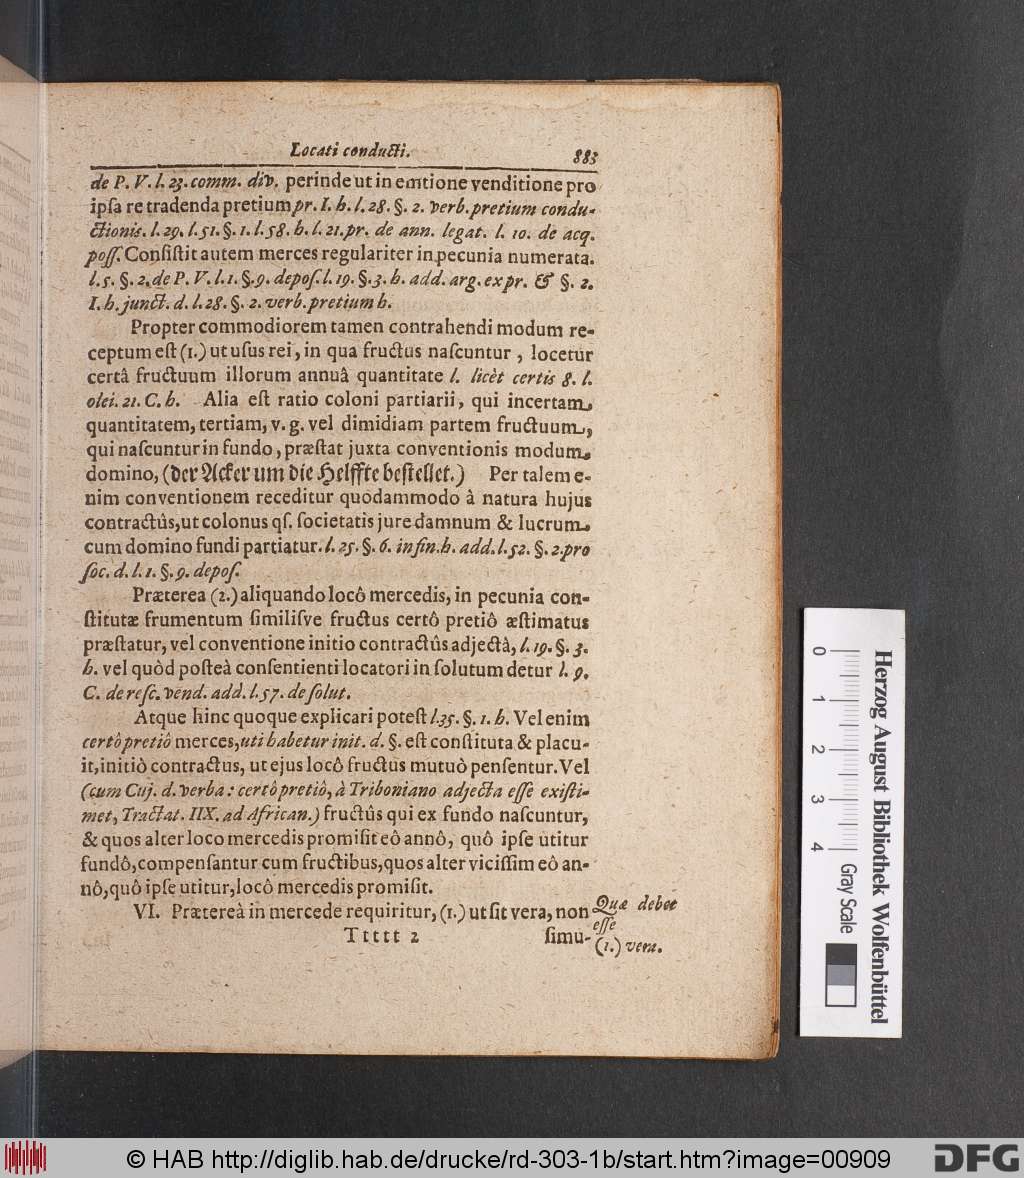 Locati conducti. 883
de P. V. l. 23. comm. div. perinde ut in emtione venditione pro
ipſa re tradenda pretium pr. I. h. l. 28. §. 2. verb. pretium condu-
ctionis. l. 29. l. 51. §. 1. l. 58. h. l. 21. pr. de ann. legat. l. 10. de acq.
poſſ. Conſiſtit autem merces regulariter in pecunia numerata.
l. 5. §. 2. de P. V. l. 1. §. 9. depoſ. l. 19. §. 3. h. add. arg. ex pr. & §. 2.
I. h. junct. d. l. 28. §. 2. verb. pretium h.
Propter commodiorem tamen contrahendi modum re-
ceptum eſt (1.) ut uſus rei, in qua fructus naſcuntur, locetur
certâ fructuum illorum annuâ quantitate l. licèt certis 8. l.
olei. 21. C. h. Alia eſt ratio coloni partiarii, qui incertam
quantitatem, tertiam, v. g. vel dimidiam partem fructuum,
qui naſcuntur in fundo, præſtat juxta conventionis modum
domino, (der Acker um die Helffte beſtellet.) Per talem e-
nim conventionem receditur quodammodo à natura hujus
contractûs, ut colonus qſ. ſocietatis jure damnum & lucrum
cum domino fundi partiatur. l. 25. §. 6. in fin. h. add. l. 52. §. 2. pro
ſoc. d. l. 1. §. 9. depoſ.
Præterea (2.) aliquando locô mercedis, in pecunia con-
ſtitutæ frumentum ſimiliſve fructus certô pretiô æſtimatus
præſtatur, vel conventione initio contractûs adjectâ, l. 19. §. 3.
h. vel quòd poſteà conſentienti locatori in ſolutum detur l. 9.
C. de reſc. vend. add. l. 57. de ſolut.
Atque hinc quoque explicari poteſt l. 35. §. 1. h. Vel enim
certô pretiô merces, uti habetur init. d. §. eſt conſtituta & placu-
it, initiò contractus, ut ejus locô fructus mutuò penſentur. Vel
(cum Cuj. d. verba: certô pretiô, à Triboniano adjecta eſſe exiſti-
met, Tractat. IIX. ad African.) fructûs qui ex fundo naſcuntur,
& quos alter loco mercedis promiſit eô annô, quô ipſe utitur
fundô, compenſantur cum fructibus, quos alter viciſſim eô an-
nô, quô ipſe utitur, locô mercedis promiſit.
VI. Prætereà in mercede requiritur, (1.) ut ſit vera, non
Quæ debet
eſſe
(1.) vera.
Ttttt 2 ſimu-
0 1 2 3 4
Gray Scale
Herzog August Bibliothek Wolfenbüttel
© HAB http://diglib.hab.de/drucke/rd-303-1b/start.htm?image=00909
DFG